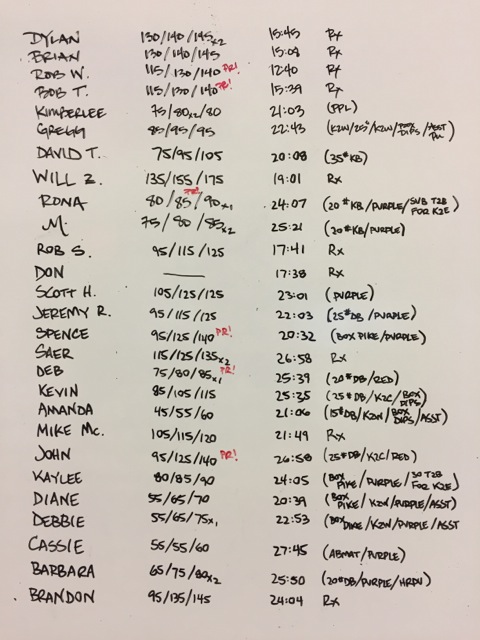 DYLAN 130/140/145x2 15:45 Rx
BRIAN 130/140/145 15:08 Rx
ROB W. 115/130/140 PR! 12:40 Rx
BOB T. 115/130/140 PR! 15:39 Rx
KIMBERLEE 75/80x2/80 21:03 (PPL)
GREGG 85/95/95 22:43
DAVID T. 75/95/105 20:08 (35#KB)
WILL Z. 135/155/175 19:01 Rx
RONA 80/85 PR!/90x1 24:07 (20#KB/PURPLE/SUB T2B FOR K2E)
M. 75/80/85x2 25:21 (20#KB/PURPLE)
ROB S. 95/115/125 17:41 Rx
DON — 17:38 Rx
SCOTT H. 105/125/125 23:01 (PURPLE)
JEREMY R. 95/115/125 22:03 (25#DB/PURPLE)
SPENCE 95/125/140 PR! 20:32 (BOX PIKE/PURPLE)
SAER 115/125/135x2 26:58 Rx
DEB 75/80/85x1 PR! 25:39 (20#DB/RED)
KEVIN 85/105/115 25:35 (25#DB/K2C/BOX DIPS)
AMANDA 45/55/60 21:06 (15#DB/K2W/BOX DIPS/ASST)
MIKE MC. 105/115/120 21:49 Rx
JOHN 95/125/140 PR! 26:58 (25#DB/K2C/RED)
KAYLEE 80/85/90 24:05 (BOX PIKE/PURPLE/30 T2B FOR K2E)
DIANE 55/65/70 20:39 (BOX PIKE/K2W/PURPLE/ASST)
DEBBIE 55/65/75x1 22:53 (BOX PIKE/K2W/PURPLE/ASST
CASSIE 55/55/60 27:45 (ABMAT/PURPLE)
BARBARA 65/75/80x2 25:50 (20#DB/PURPLE/HRPU)
BRANDON 95/135/145 24:04 Rx